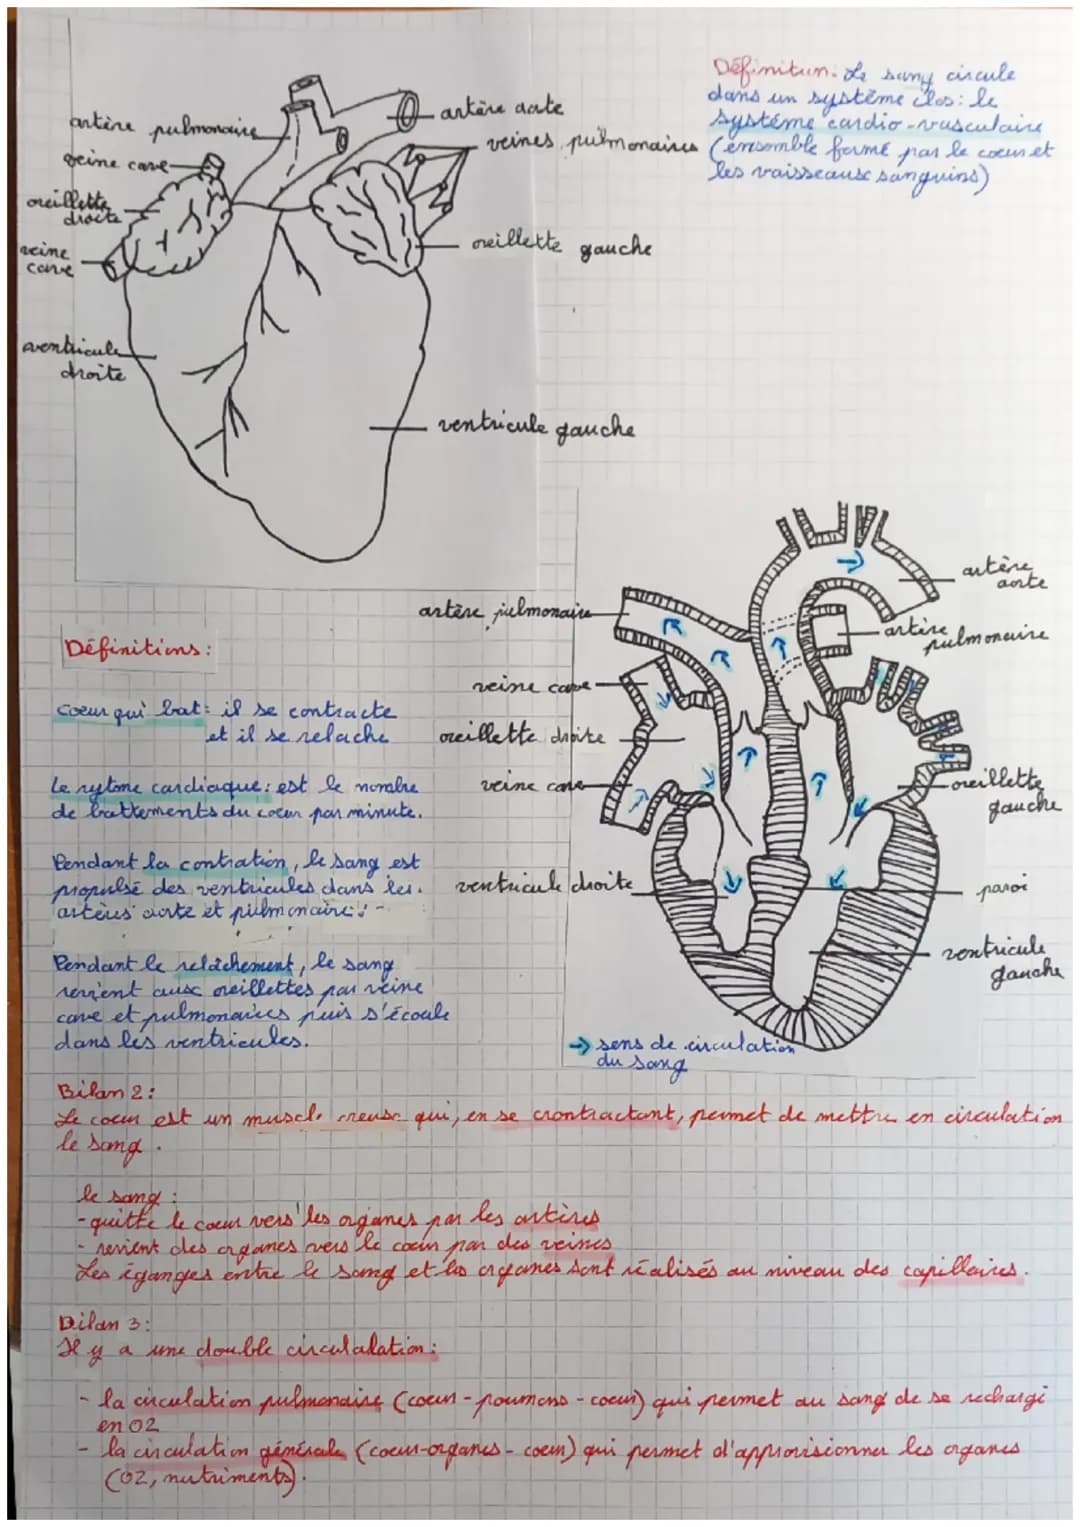 Définition: Le sang circule
dans un système clos: le
système cardio-vasculaire
(ensemble formé par le coeur et
les vaisseaux sanguins)
artère pulmonaire
veine cave
oreillette
droite
veine
cave
ventricule
droite
artère aorte
veines pulmonaires
oreillette gauche
ventricule gauche
artère pulmonaire
veine cave
oreillette droite
veine cave
ventricule droite
artère
aorte
artère
pulmonaire
oreillette
gauche
paroi
ventricule
gauche
→ sens de circulation
du sang
Définitions:
Coeur qui bat: il se contracte
et il se relache
Le rytme cardiaque: est le nombre
de battements du coeur par minute.
Pendant la contration, le sang est
propulsé des ventricules dans les
artères aorte et pulmonaire:-
Pendant le relâchement, le sang
revient aux oreillettes par veine
cave et pulmonaires puis s'écoule
dans les ventricules.
Bilan 2:
Le coeur est un muscle creuse qui, en se crontractant, permet de mettre en circulation
le sang.
le sang:
-quitte le coeur vers les organes par les artères
- revient des organes vers le coeur par des veines
Les éganges entre le sang et les organes sont réalisés au niveau des capillaires.
Bilan 3:
Il y a une double circulalation:
- la circulation pulmonaire (coeur-poumons-coeur) qui permet au sang de se rechargi
en O2
- la circulation générale (coeur-organes-coeur) qui permet d'approvisionner les organes
(O2, nutriments).